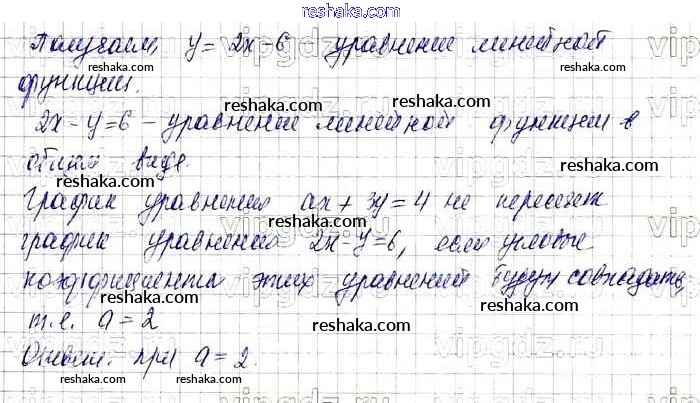 reshaka.com
Получаем, y = 2x - 6 уравнение линейной
функции.
reshaka.com reshaka.com
2x - y = 6 - уравнение линейной функции в
общем виде.
reshaka.com reshaka.com reshaka.com
График уравнения ax + 3y = 4 не пересечёт
reshaka.com reshaka.com
график уравнения 2x - y = 6, если угловые
reshaka.com reshaka.com
коэффициенты этих уравнений будут совпадать,
reshaka.com reshaka.com
т.е. a = 2
reshaka.com reshaka.com
Ответ: при a = 2.
vipgdz.ru
reshaka.com reshaka.com reshaka.com
reshaka.com